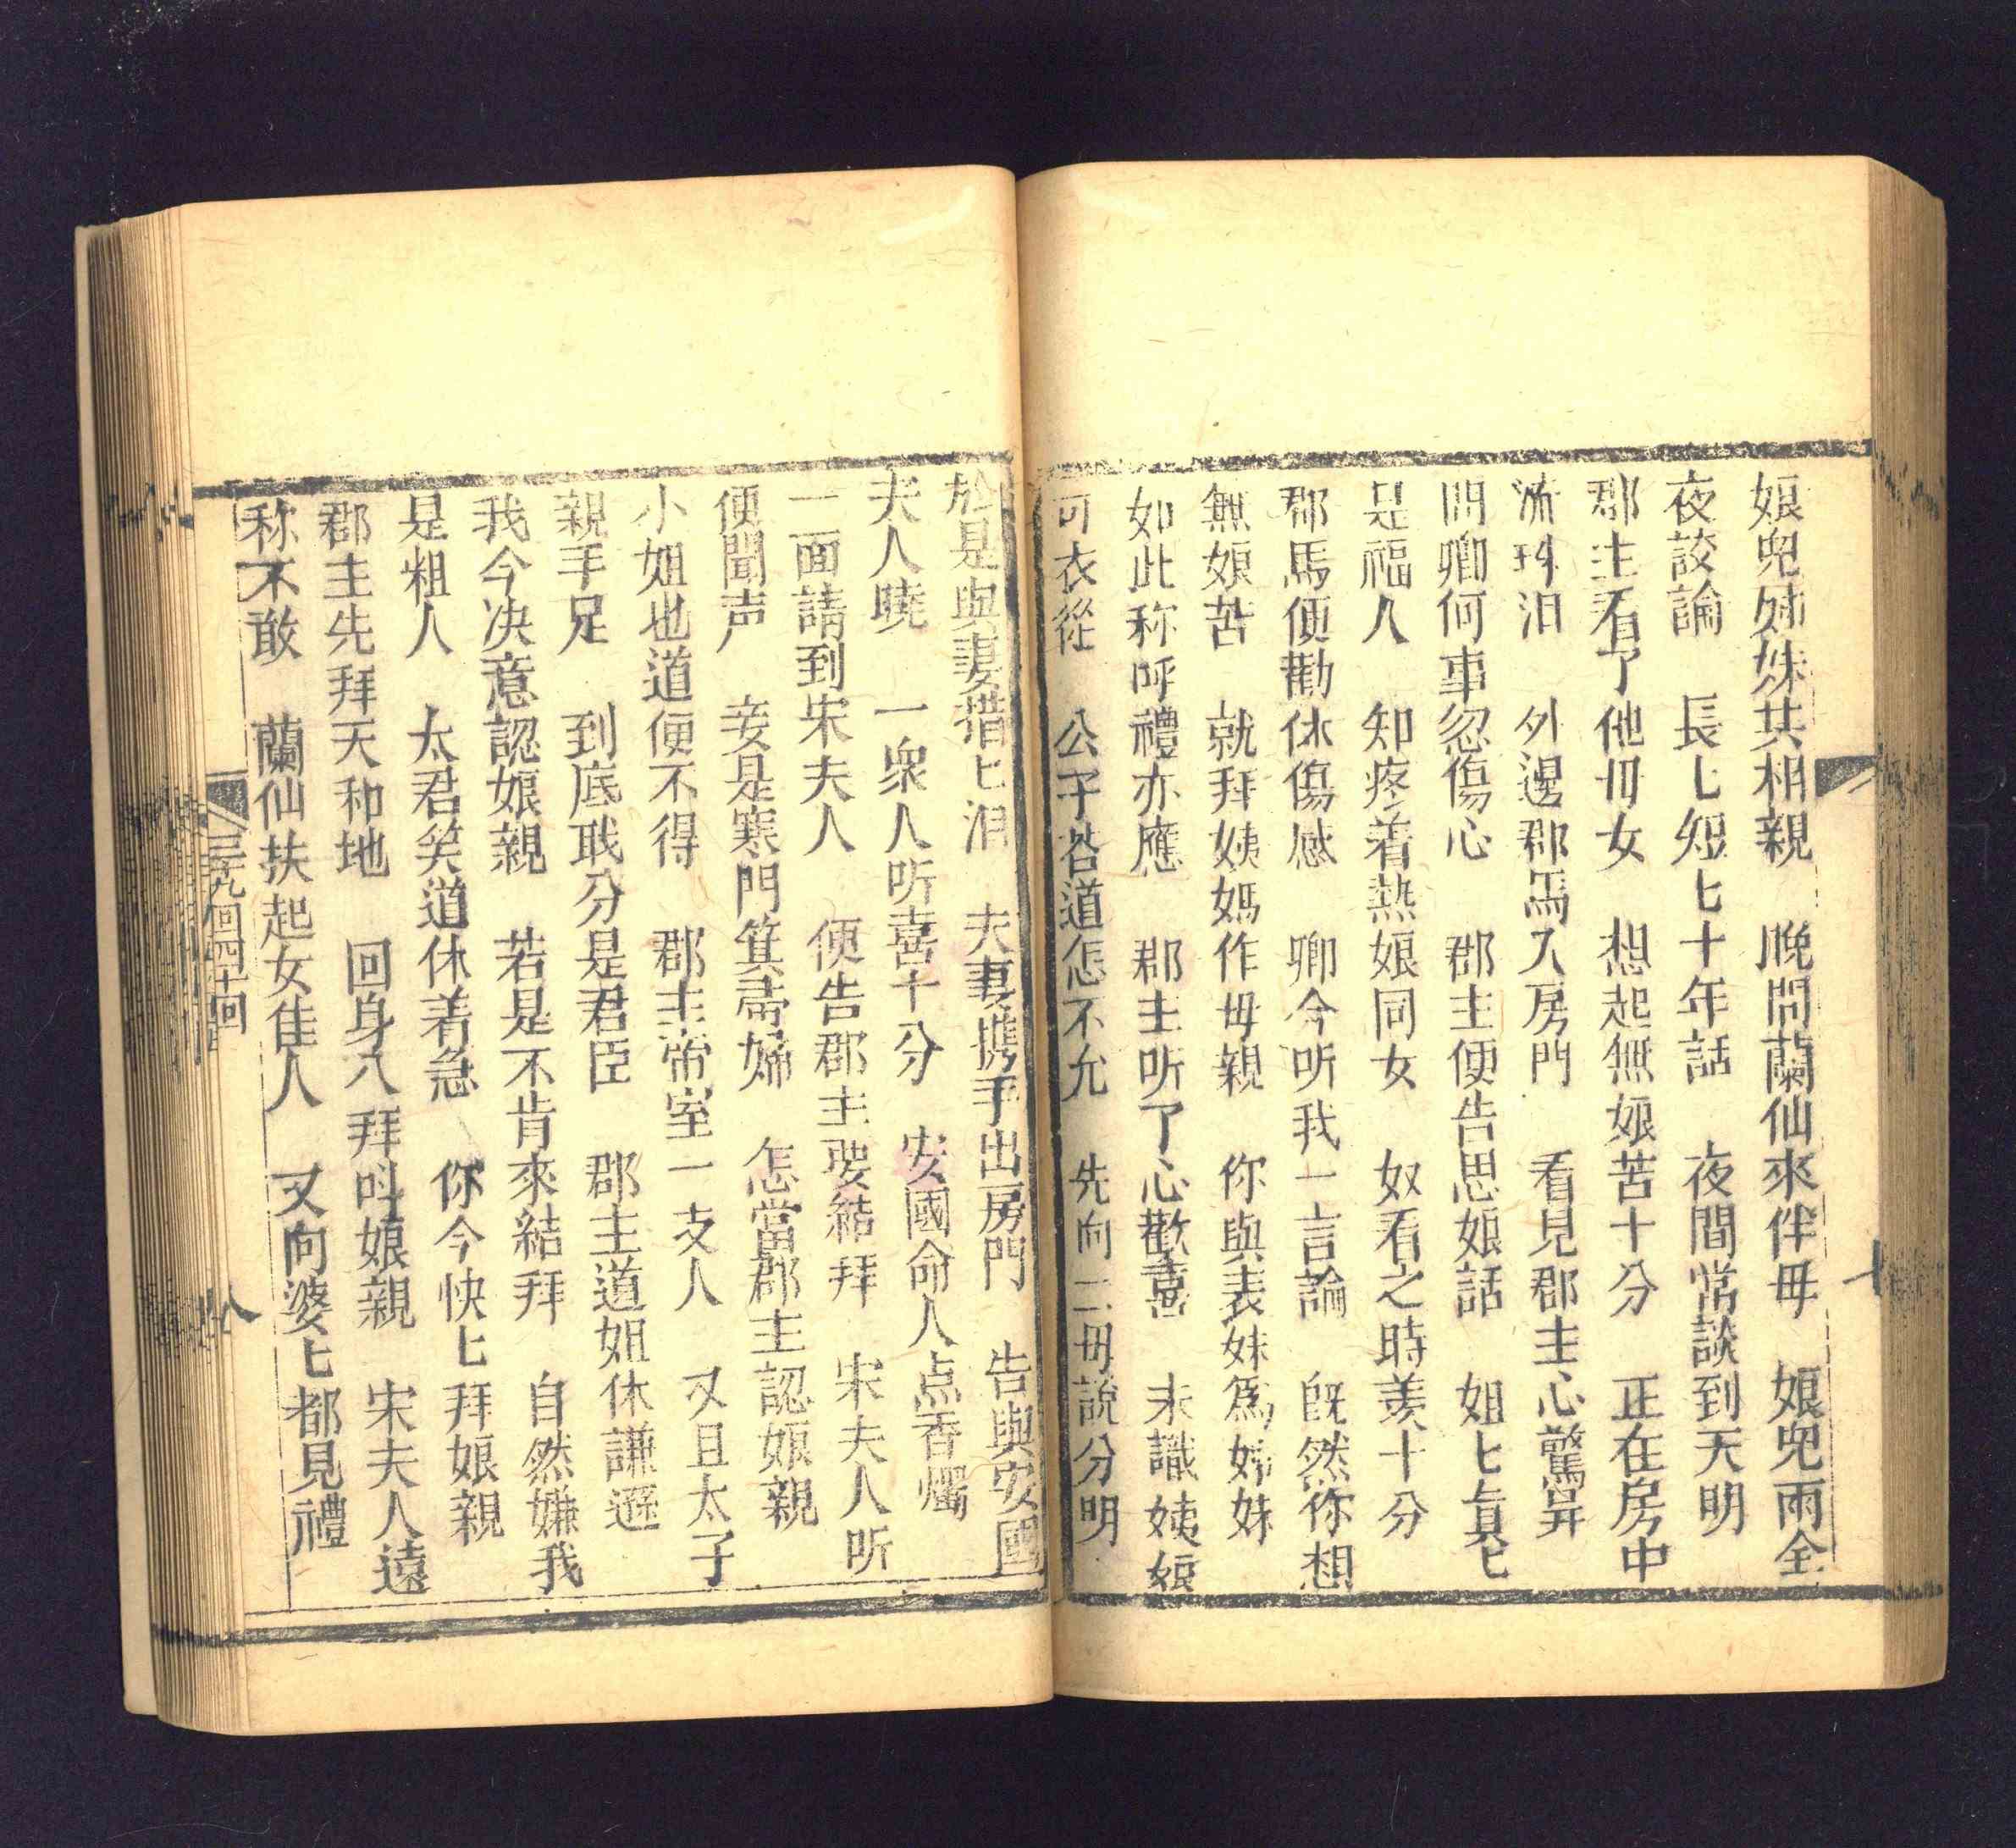 娘兒姊妹共相親　晚間蘭仙來伴母　娘兒兩全
夜談論　長匕短匕十年話　夜間常談到天明
郡主看了他母女　想起無娘苦十分　正在房中
流珠泪　外邊郡馬入房門　看見郡主心驚异
問卿何事忽傷心　郡主便告思娘話　姐匕真匕
是福人　知疼着熱娘同女　奴看之時羨十分
郡馬便勸休傷感　卿今听我一言論　旣然你想
無娘苦　就拜姨媽作母親　你與表妹爲姊妹
如此称呼禮亦應　郡主听了心歡喜　未識姨娘
可衣從　公子答道怎不允　先向二母說分明
於是與妻揩匕泪　夫妻携手出房門　告與安國
夫人曉　一衆人听喜十分　安國命人点香燭
一面請到宋夫人　便告郡主要結拜　宋夫人听
便聞声　妾是寒門箕帚婦　怎當郡主認娘親
小姐也道便不得　郡主帝室一支人　又且太子
親手足　到底戢分是君臣　郡主道姐休謙遜
我今决意認娘親　若是不肯來結拜　自然嫌我
是粗人　太君笑道休着急　你今快匕拜娘親
郡主先拜天和地　回身八拜呌娘親　宋夫人遠
称不敢　蘭仙扶起女佳人　又向婆匕都見禮
三十九回四十回
八